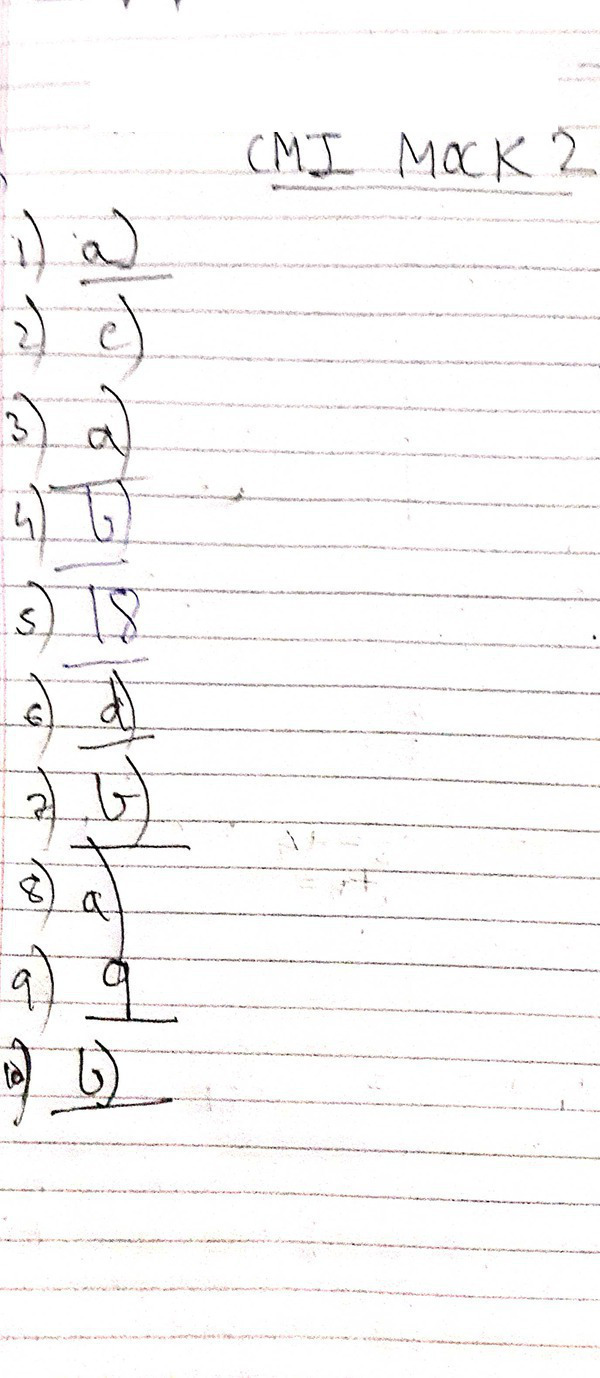 CMI MOCK 2
1) a)
2) c)
3) a)
4) b)
5) 18
6) d)
7) b)
8) a)
9) 9
10) b)